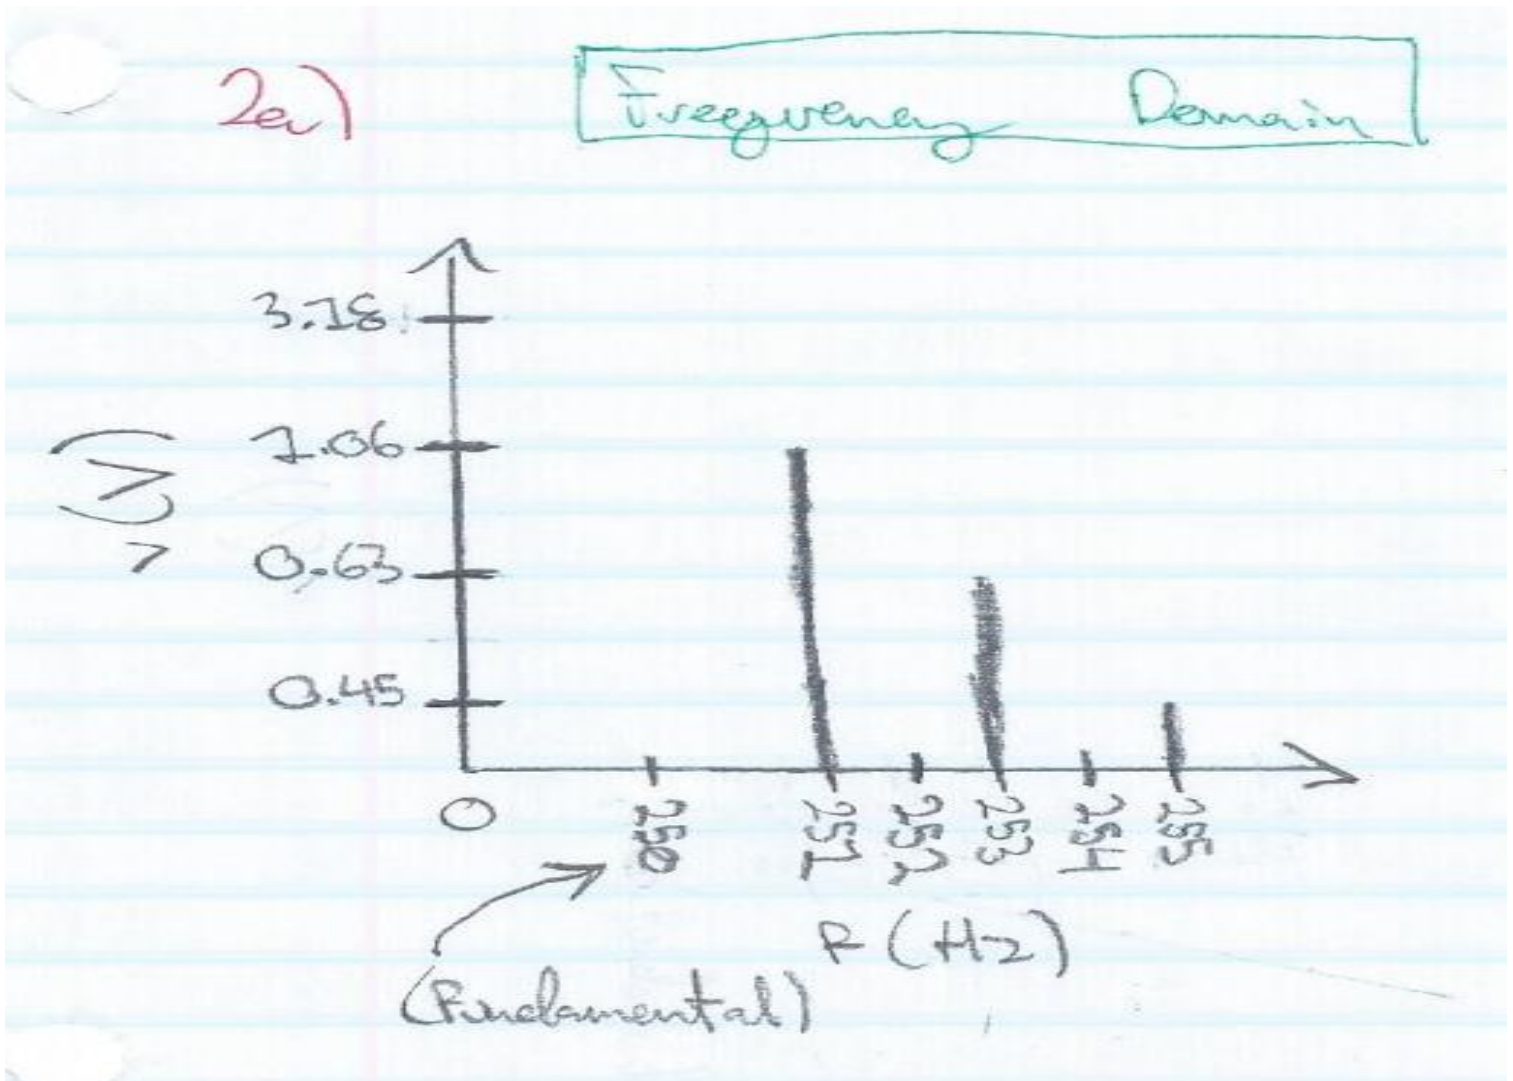 2a) Frequency Domain
3.18
1.06
V (V)
0.63
0.45
0 250 251 252 253 254 255
F (Hz)
(Fundamental)